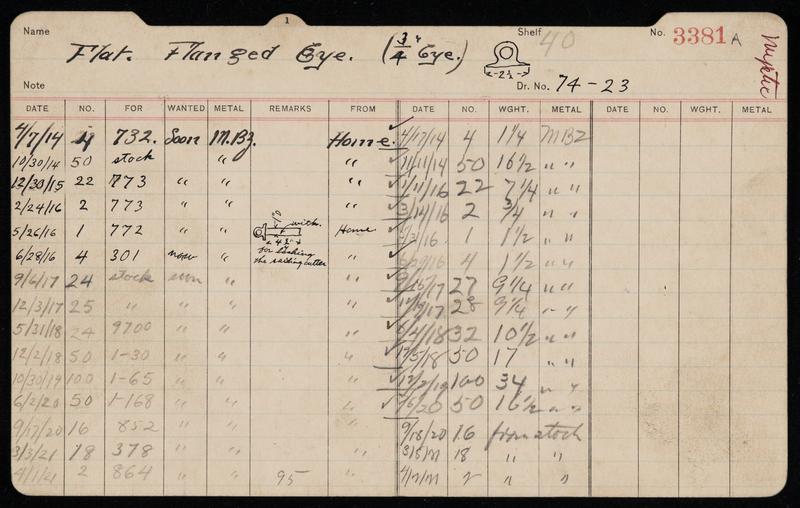 1
Name Flat. Flanged Eye. (3/4" Eye.) Shelf 40 No. 3381 A Mystic
-2 1/2-
Note Dr. No. 74-23
DATE NO. FOR WANTED METAL REMARKS FROM DATE NO. WGHT. METAL DATE NO. WGHT. METAL
4/7/14 4 732. Soon M.Bz. Home. 4/17/14 4 1 1/4 MBZ
10/30/14 50 stock " " 11/11/14 50 16 1/2 " "
12/30/15 22 773 " " " 1/11/16 22 7 1/4 " "
2/24/16 2 773 " " " 3/14/16 2 3/4 " "
5/26/16 1 772 " " with. Home /3/16 1 1 1/2 " "
6/28/16 4 301 now " for the sailing cutter " 6/29/16 4 1 1/2 " "
9/6/17 24 stock soon " " /15/17 27 9 1/4 " "
12/3/17 25 " " " " /17 28 9 1/4 " "
5/31/18 24 9700 " " " /4/18 32 10 1/2 " "
12/2/18 50 1-30 " " " 12/5/18 50 17 " "
10/30/19 100 1-65 " " " 12/2/19 100 34 " "
6/2/20 50 1-168 " " " /20 50 16 1/2 " "
9/17/20 16 852 " " " 9/18/20 16 from stock
3/3/21 18 378 " " " 18 " "
2 864 " " 95 " 2 " "